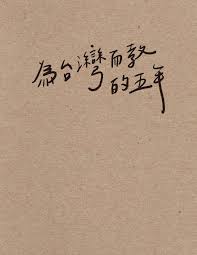 為台灣而教
的五年